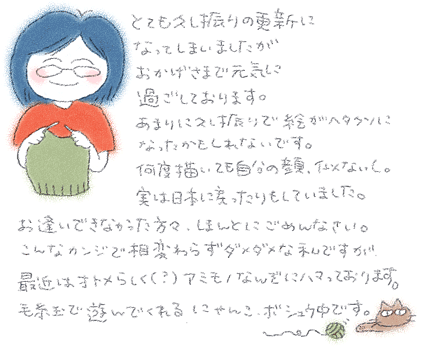 とても久し振りの更新に
なってしまいましたが
おかげさまで元気に
過ごしております。
あまりに久し振りで絵がヘタクソに
なったかもしれないです。
何度描いても自分の顔、似ないし。
実は日本に戻ったりもしていました。
お逢いできなかった方々、ほんとにごめんなさい。
こんなカンジで相変わらずダメダメな私ですが
最近はオトメらしく(?)アミモノなんぞにハマっております。
毛糸玉で遊んでくれる にゃんこ ボシュウ中です。